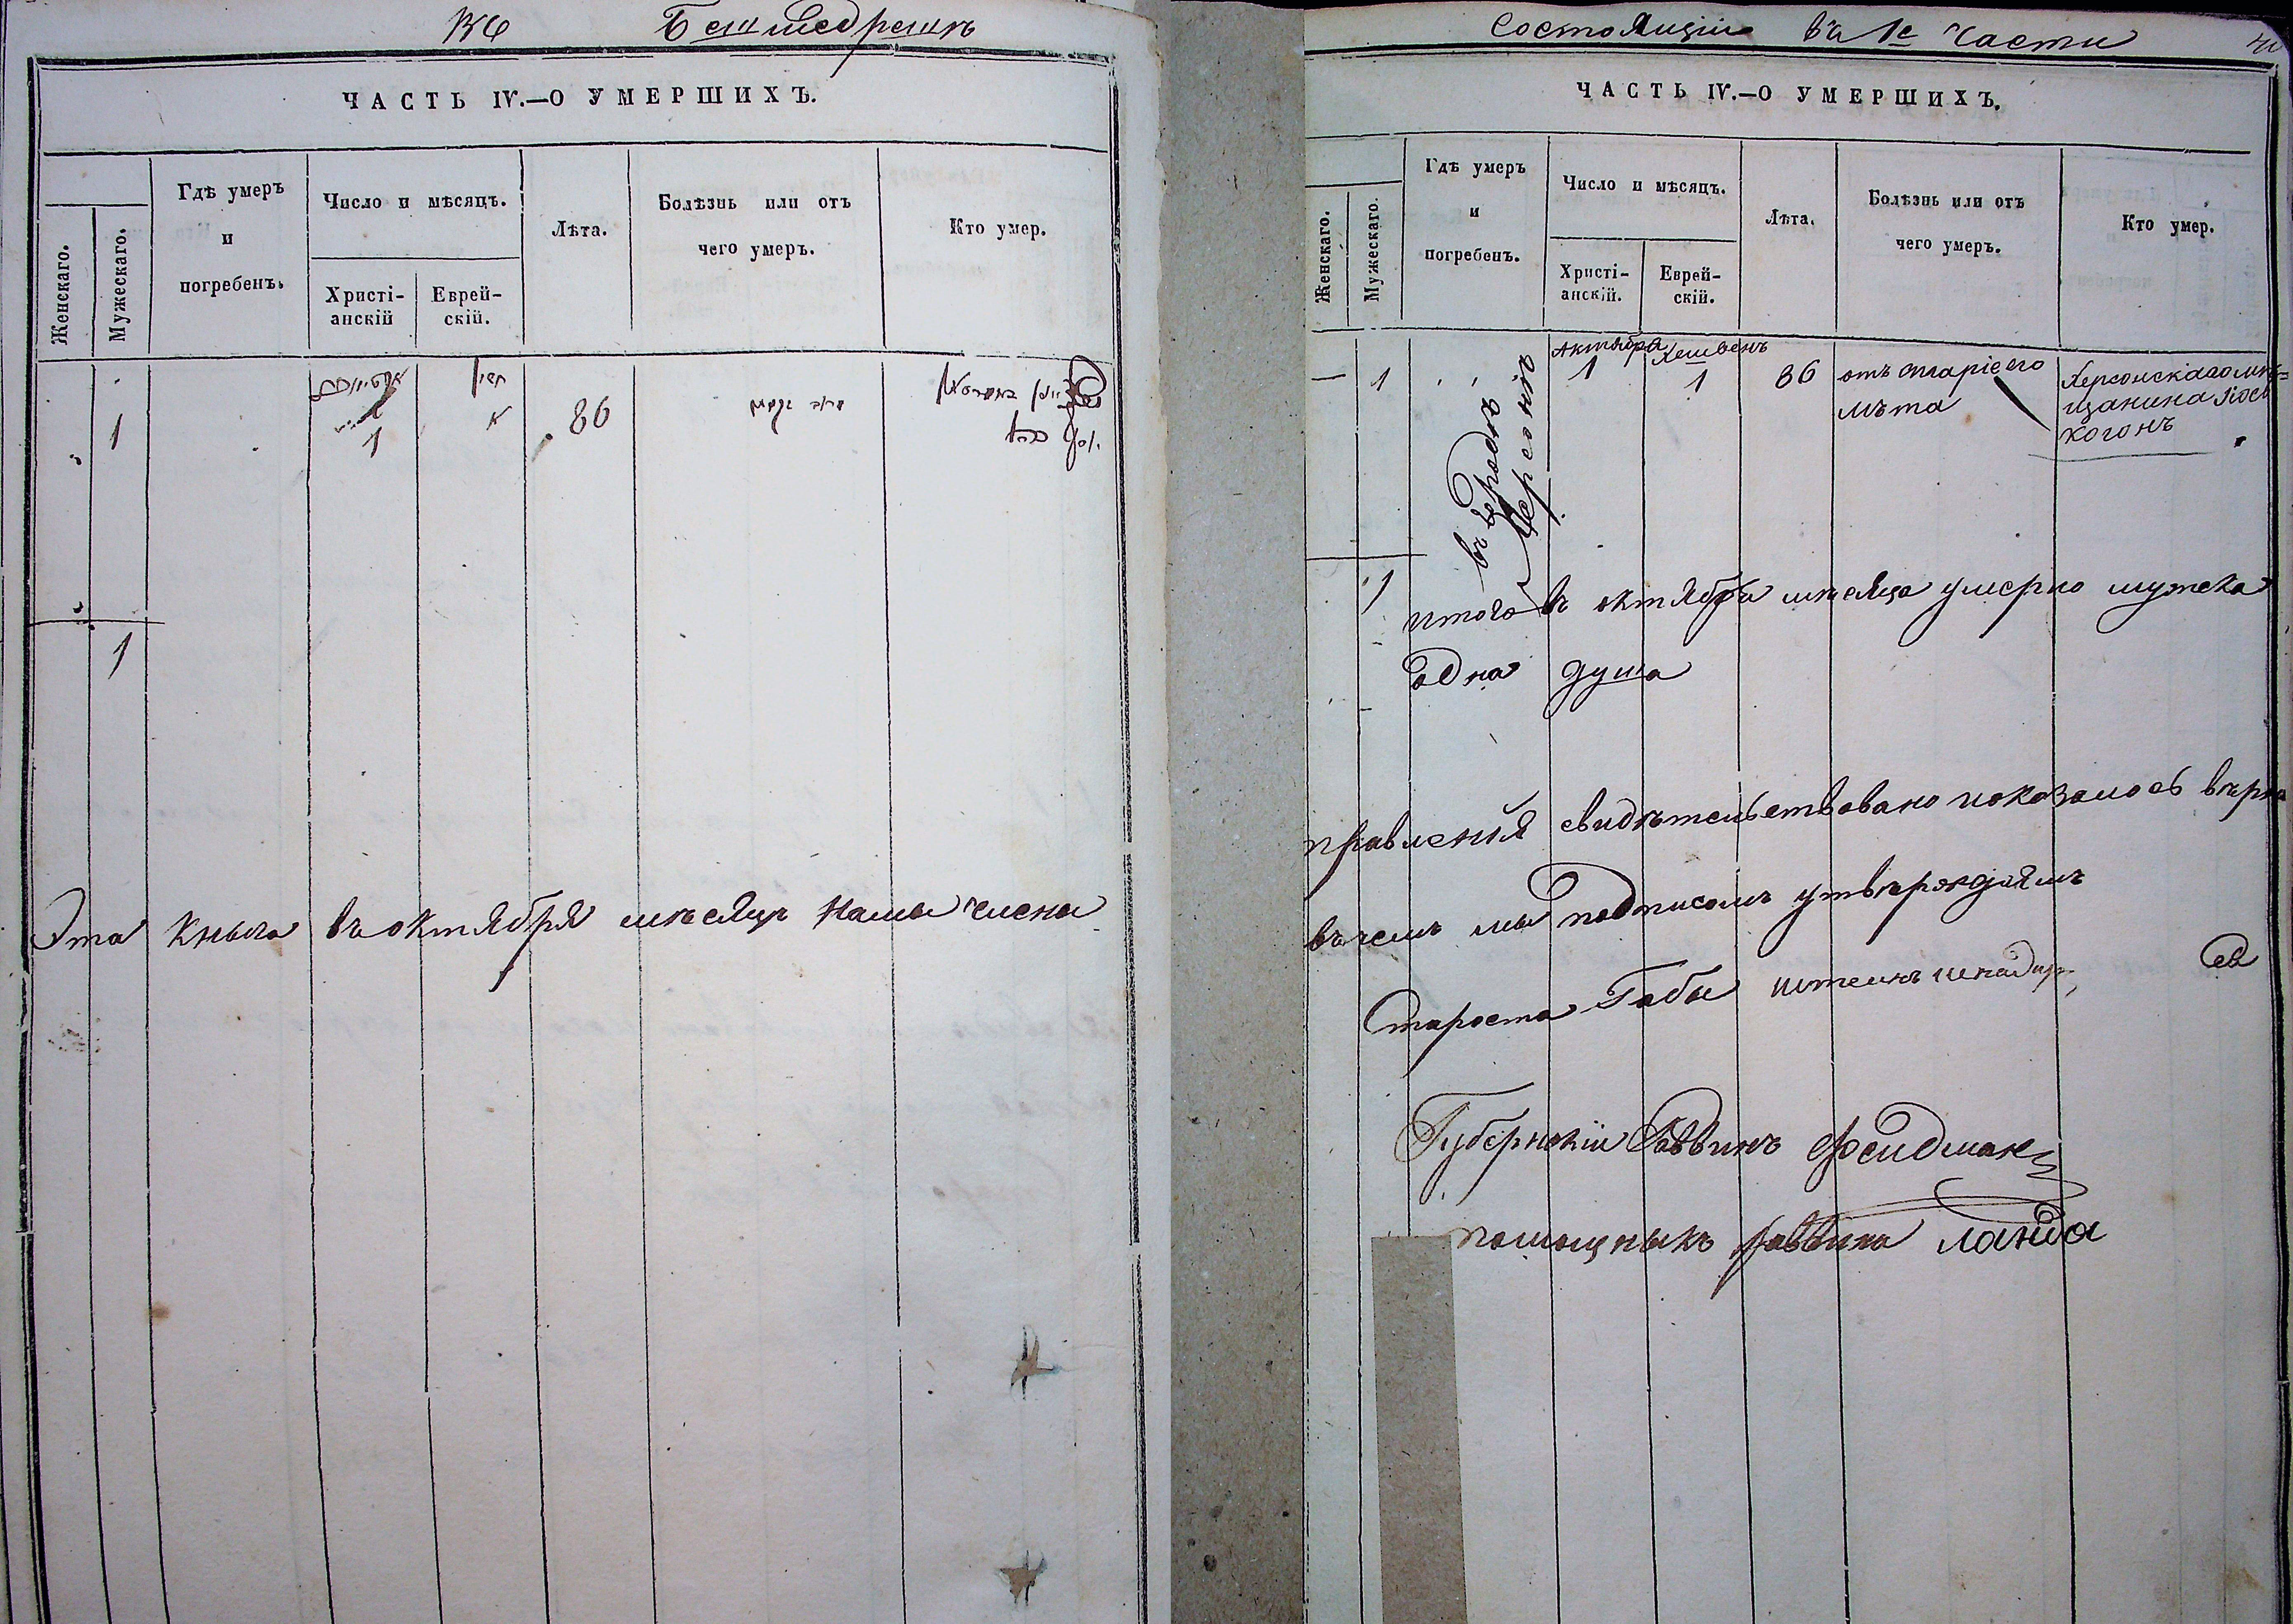 Бешмедрешъ
ЧАСТЬ IV.—О УМЕРШИХЪ.
Женскаго.
Мужескаго.
Гдѣ умеръ
и
погребенъ.
Число и мѣсяцъ.
Христі-
анскій
Еврей-
скій.
Лѣта.
Болѣзнь или отъ
чего умеръ.
Кто умер.
1
1
86
1
Эта кныга въ октября мѣсяцъ намы члены
состоящіи въ 1й части
ЧАСТЬ IV.—О УМЕРШИХЪ.
Женскаго.
Мужескаго.
Гдѣ умеръ
и
погребенъ.
Число и мѣсяцъ.
Христі-
анскій.
Еврей-
скій.
Лѣта.
Болѣзнь или отъ
чего умеръ.
Кто умер.
— 1
въ городѣ
Херсонѣ
Актября
1
Хешвенъ
1
86
отъ старіего
лѣта
Херсонскаго мѣ=
щанина
Когонъ
1
итого въ октября мѣсяца умерло мужска
одна душа
правленія свидѣтельствовано показалось вѣрна
въ чемъ мы подписомъ утвѣрждяемъ
Староста Габы
Губернскіи Раввинъ Фельдман
помощныкъ раввина Ланда